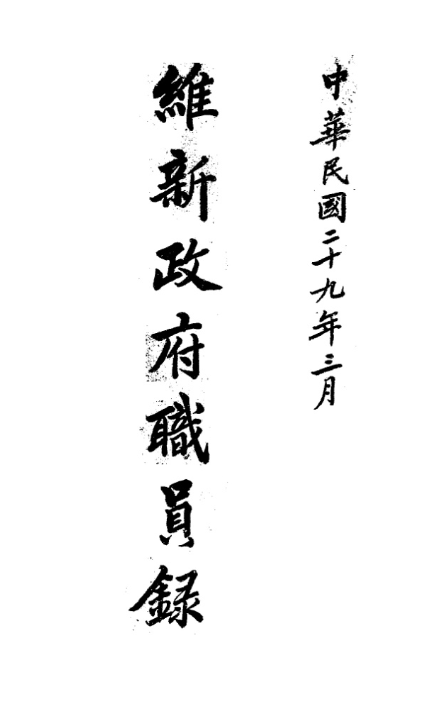 中華民國二十九年三月
維新政府職員録